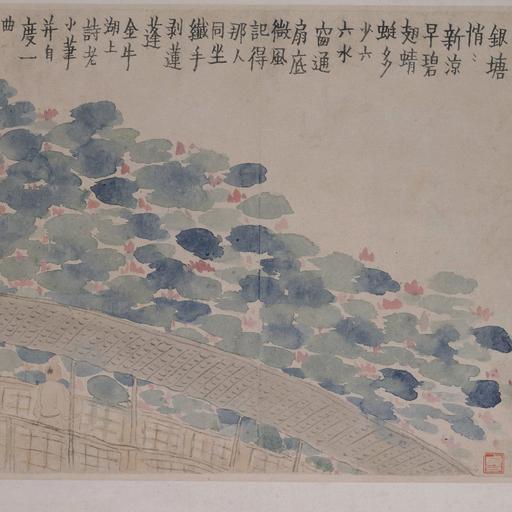 銀塘
悄〻
新涼
早碧
翅蜻
蜓多
少六
六水
窗通
扇底
微風
記得
那人
同坐
纖手
剝蓮
蓬
金牛
湖上
詩老
小筆
并自
度一
曲